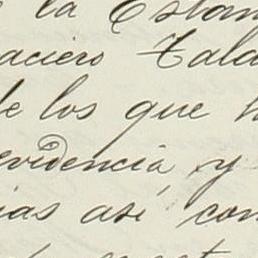 la Estan
aciero Tala
de los que h
evidencia y
ias así con